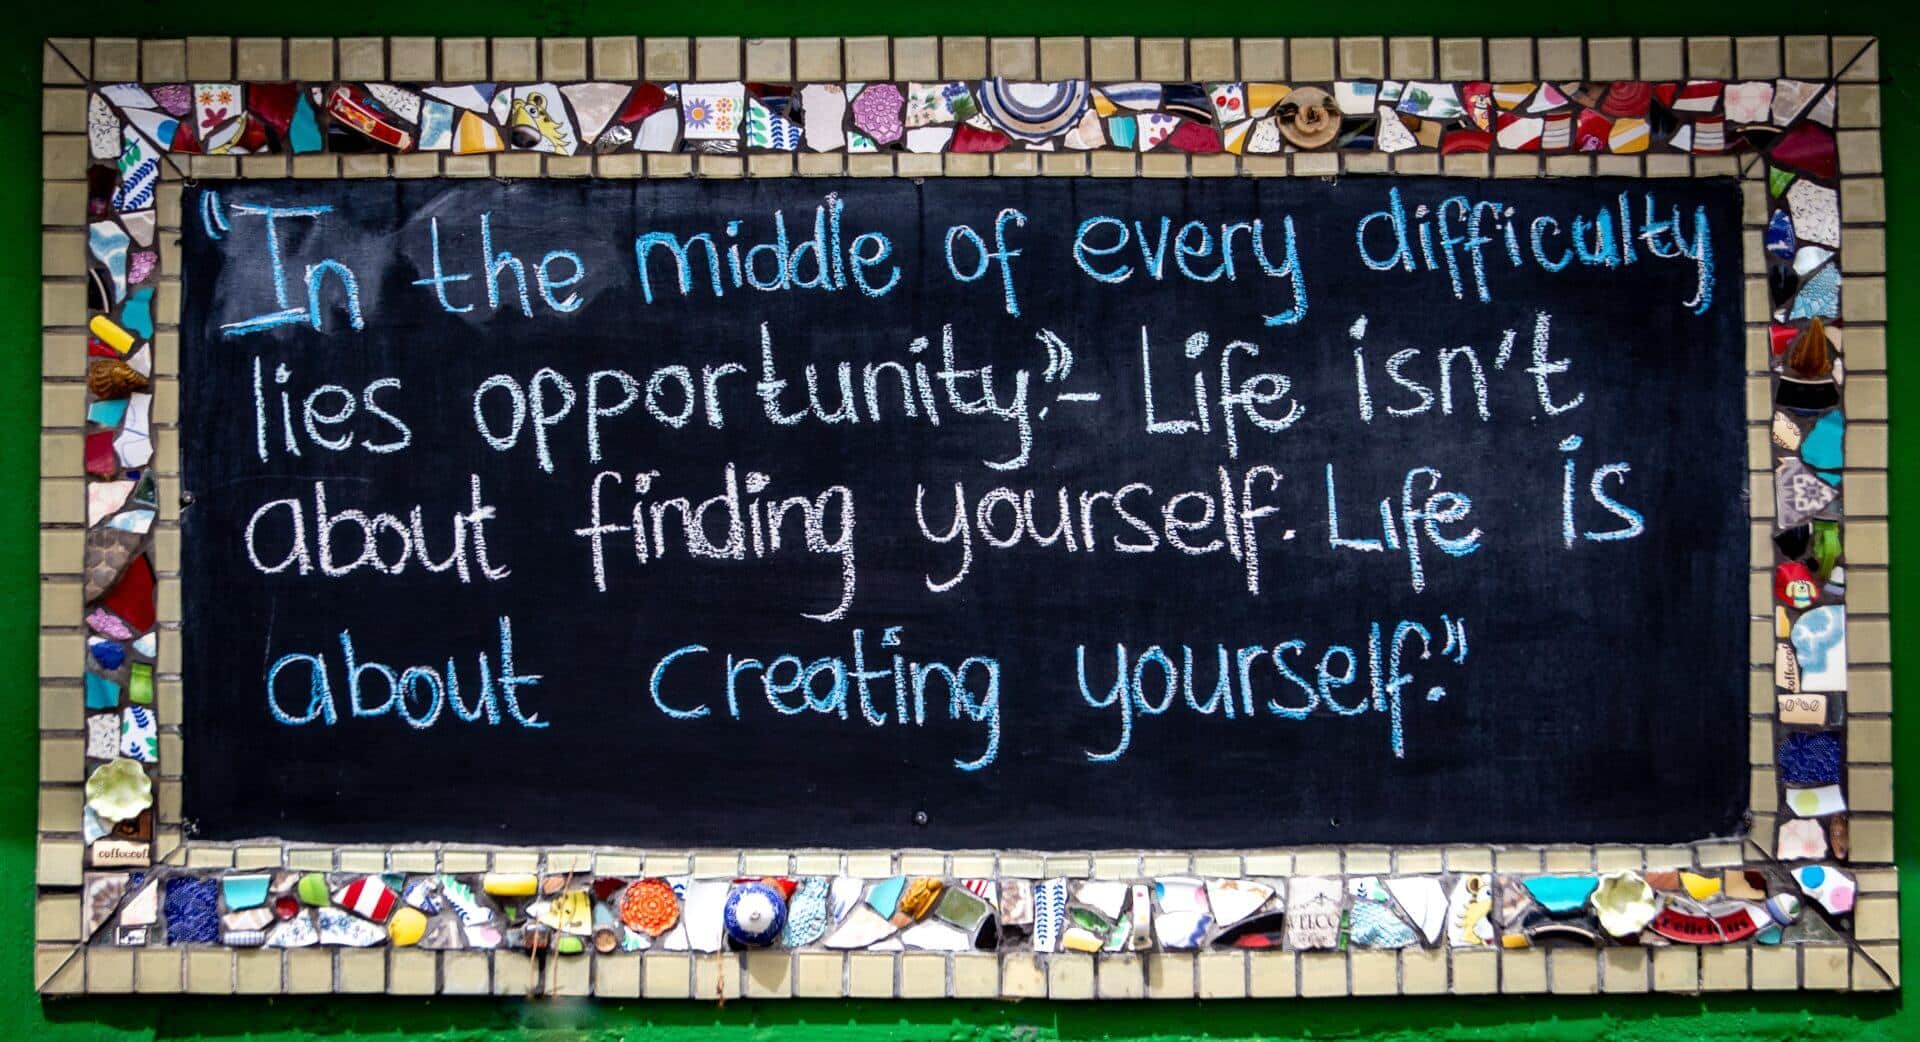 "In the middle of every difficulty
lies opportunity." - Life isn't
about finding yourself. Life is
about creating yourself."
coffeecoff
coffeecof
WELCO